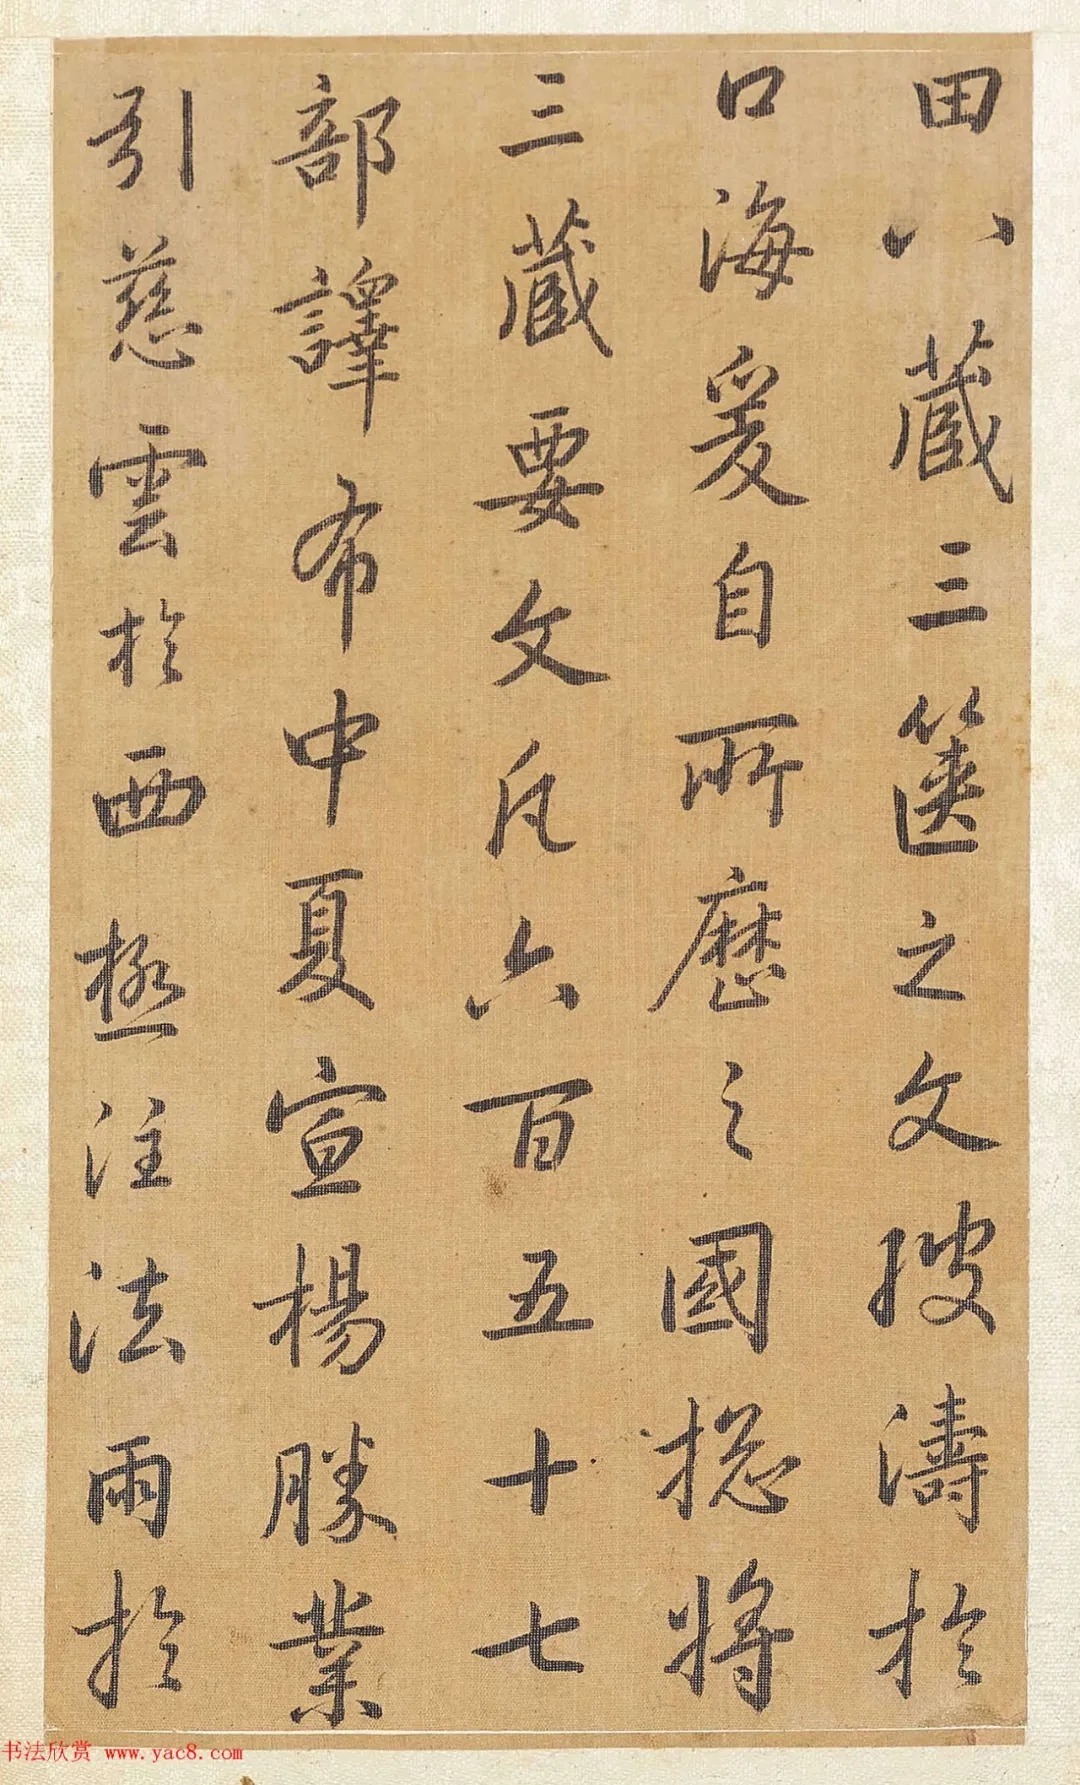 田八藏三篋之文波濤於
口海爰自所歷之國揔將
三藏要文凡六百五十七
部譯布中夏宣楊勝業
引慈雲於西極注法雨於
书法欣赏 www.yac8.com